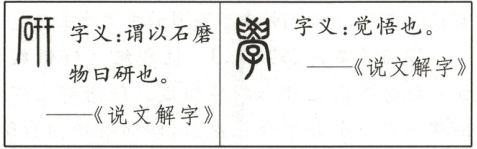 研 字义:谓以石磨
物曰研也。
——《说文解字》
學 字义:觉悟也。
——《说文解字》